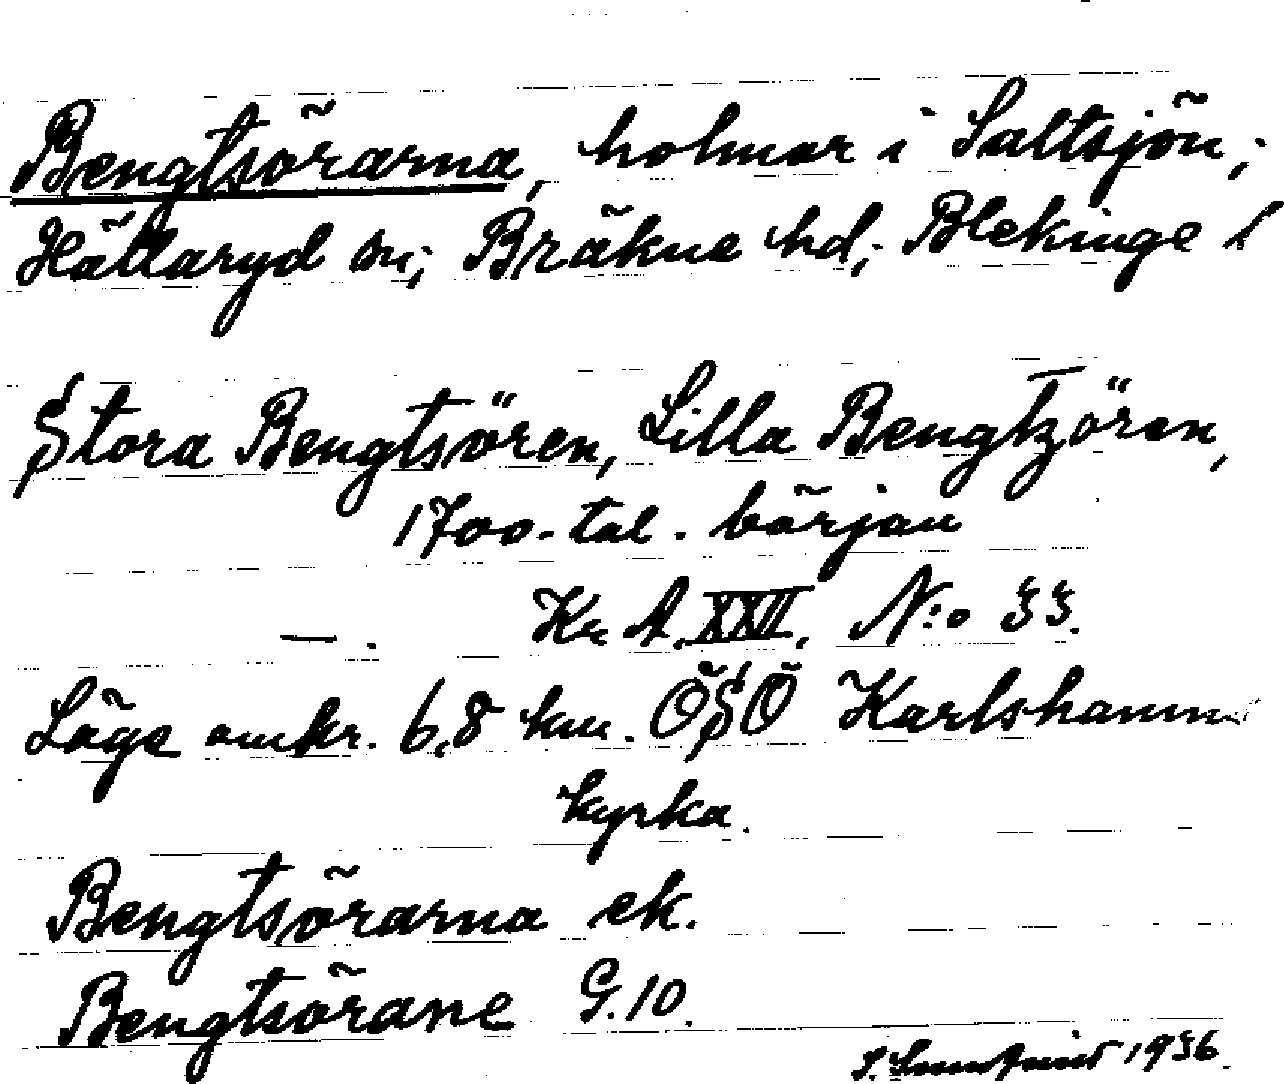 Bengtsörarna, holmar i Saltsjön;
Hällaryd sn; Bräkne hd; Blekinge l
Stora Bengtsören, Lilla Bengtzören,
1700-tal. början
—. Kr A. XXII. N:o 33.
Läge omkr. 6,8 km. ÖSÖ Karlshamn
kyrka.
Bengtsörarna ek.
Bengtsörane G.10.
1936.